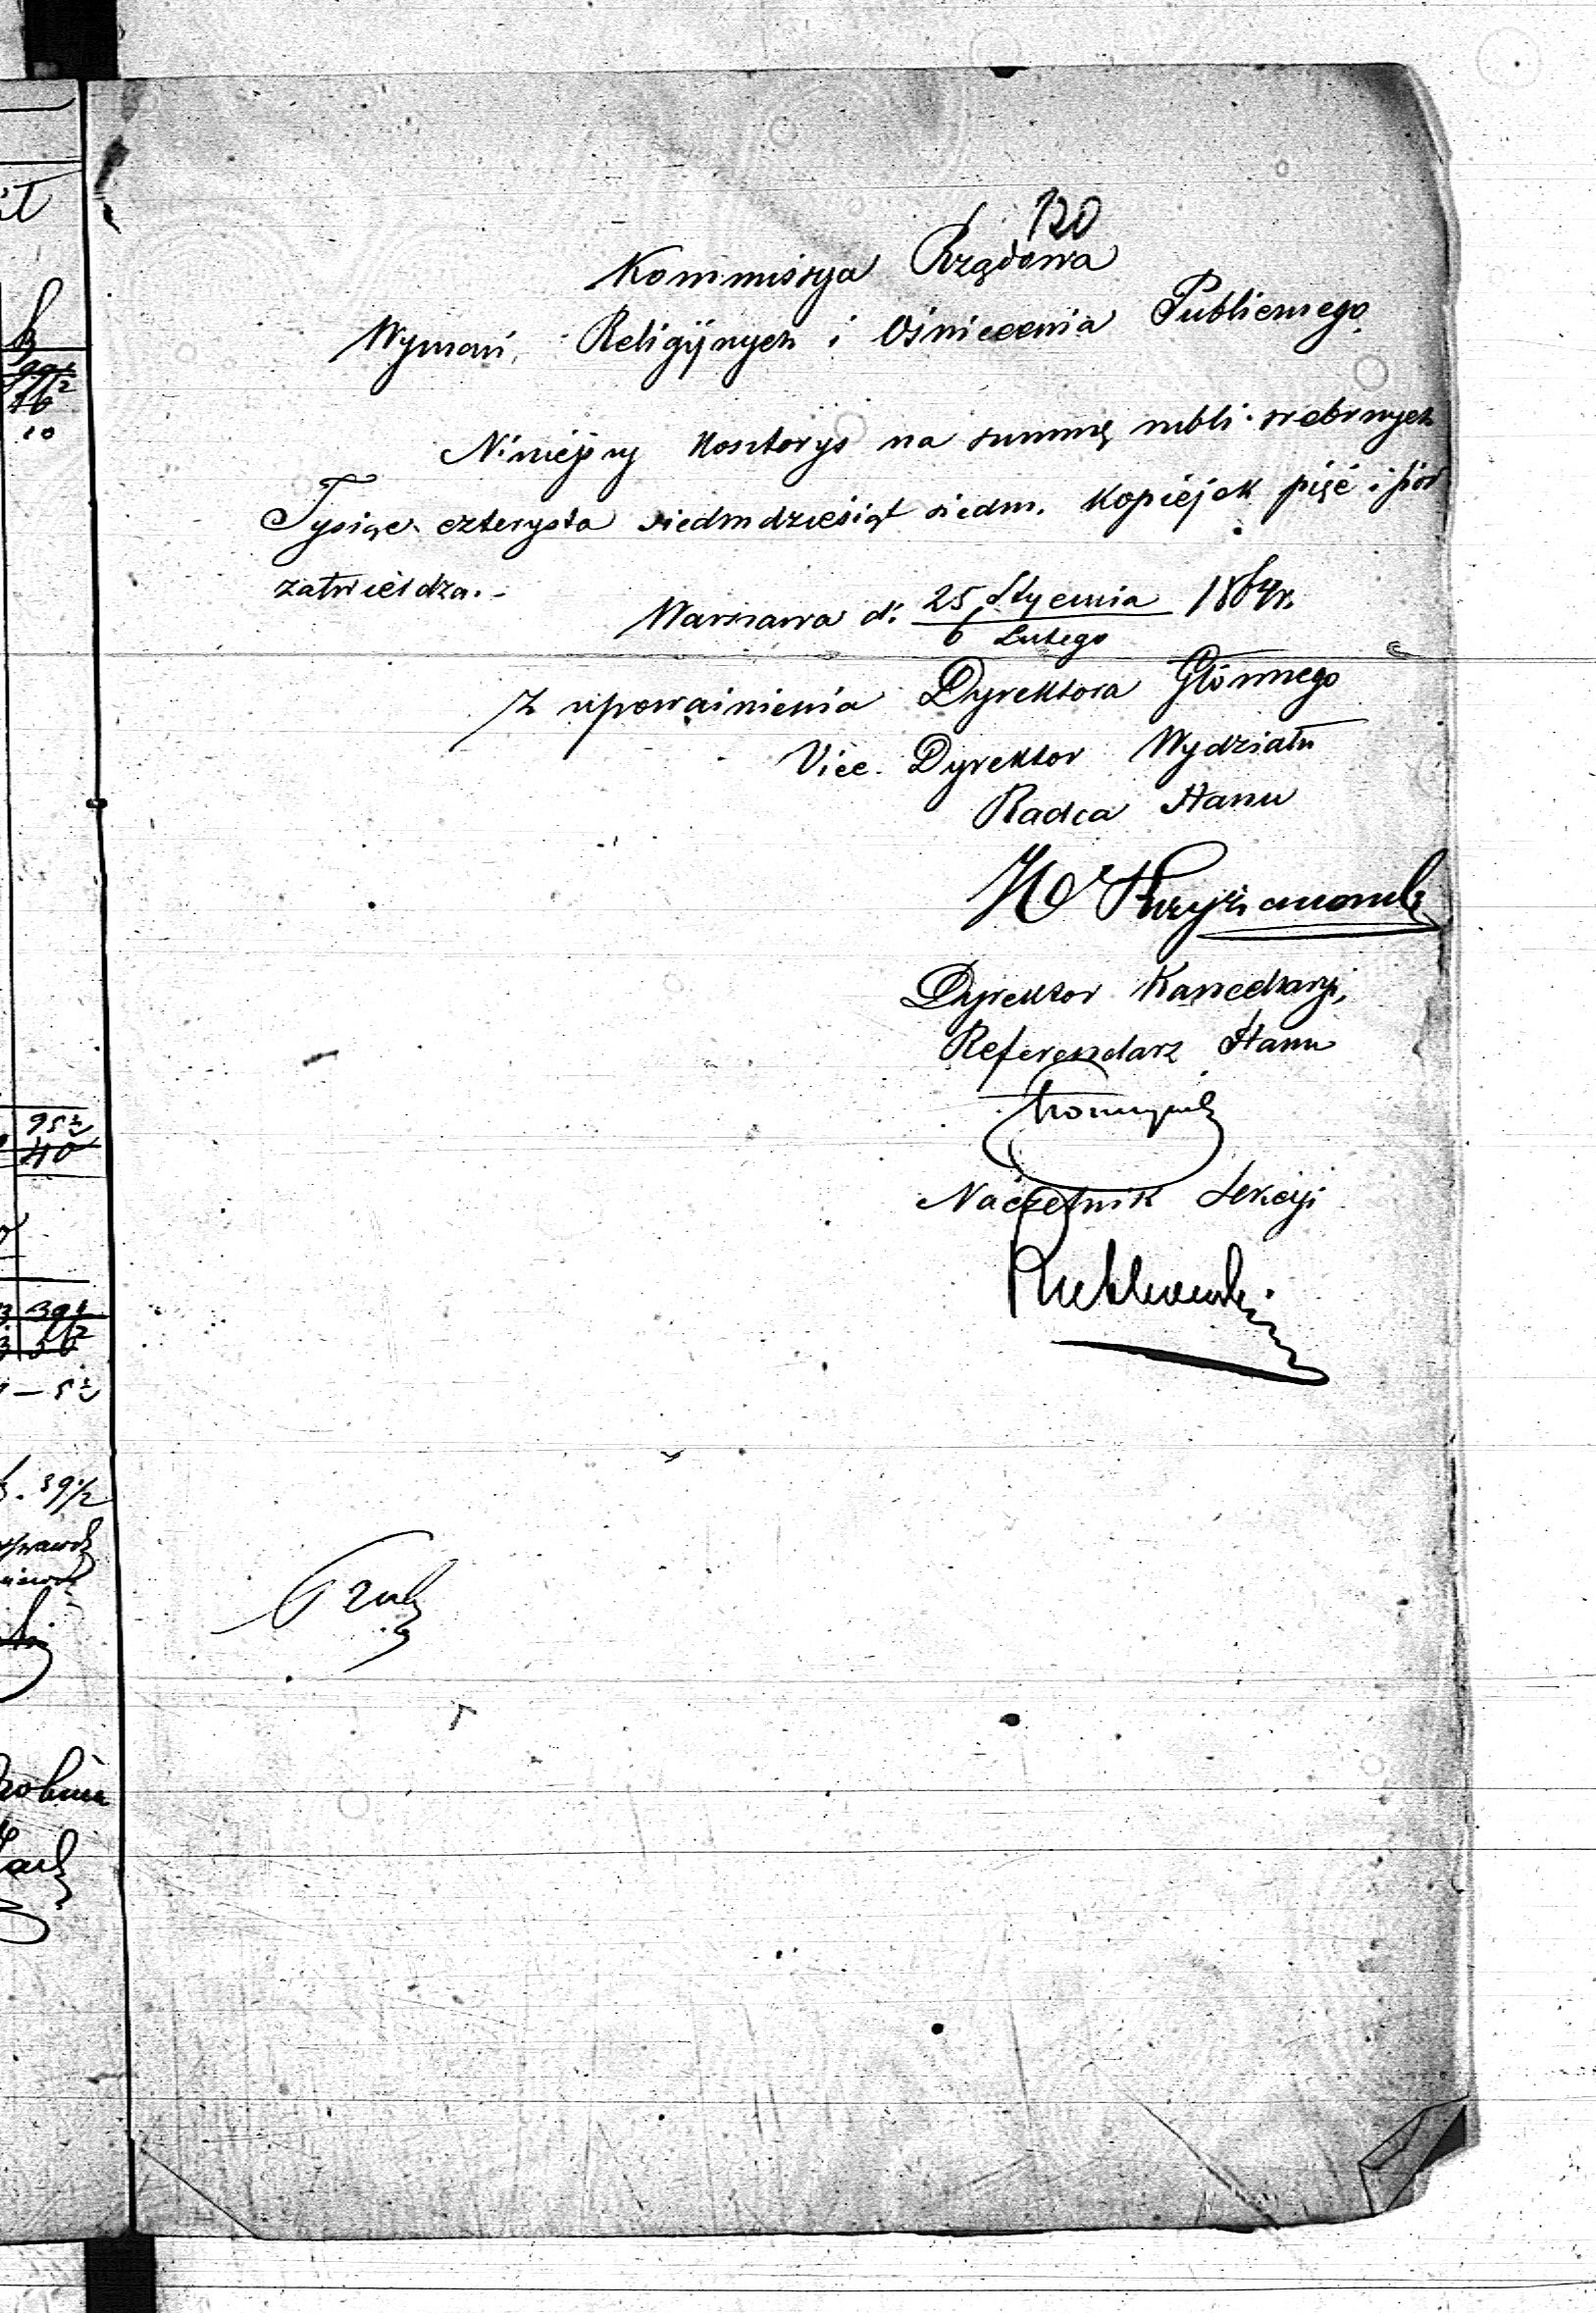 120
Kommissya Rządowa
Wyznań Religijnych i Oświecenia Publicznego.
Niniejszy Kosztorys na summę rubli srebrnych
Tysiąc czterysta siedmdziesiąt siedm. Kopiejek pięć i pół
zatwierdza.-
Warszawa d: 25 Stycznia 1864r.
6 Lutego
Z upoważnienia Dyrektora Głównego
Vice-Dyrektor Wydziału
Radca Stanu
Krzyżanowski
Dyrektor Kancellaryi,
Referendarz Stanu
Naczelnik Sekcyi
95½
40
39½
36
5½
39½
10